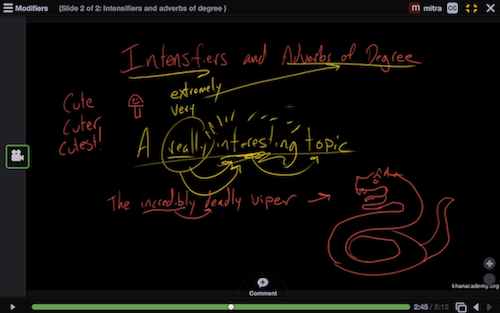 Modifiers
(Slide 2 of 2: Intensifiers and adverbs of degree )
mitra
CC
Intensfiers and Adverbs of Degree
extremely
very
Cute
Cuter
Cutest!!
A really interesting topic
The incredibly deadly viper
Comment
khanacademy.org
2:45 / 5:13